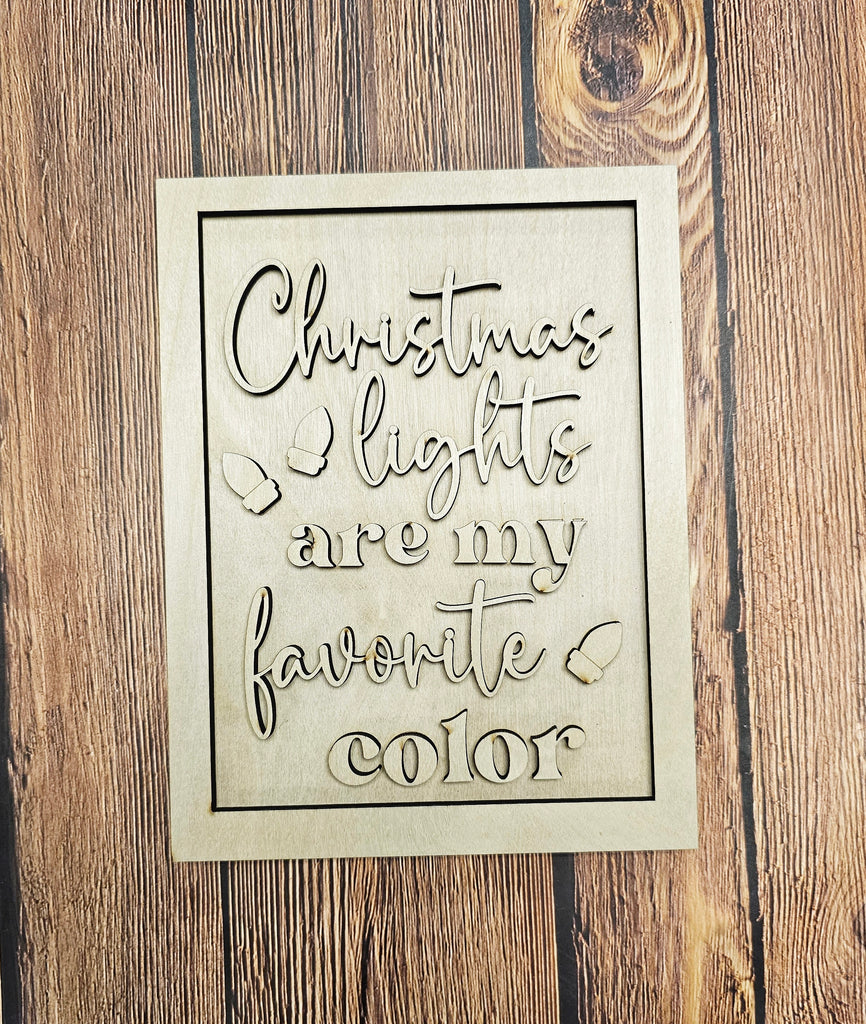 Christmas
lights
are my
favorite
color